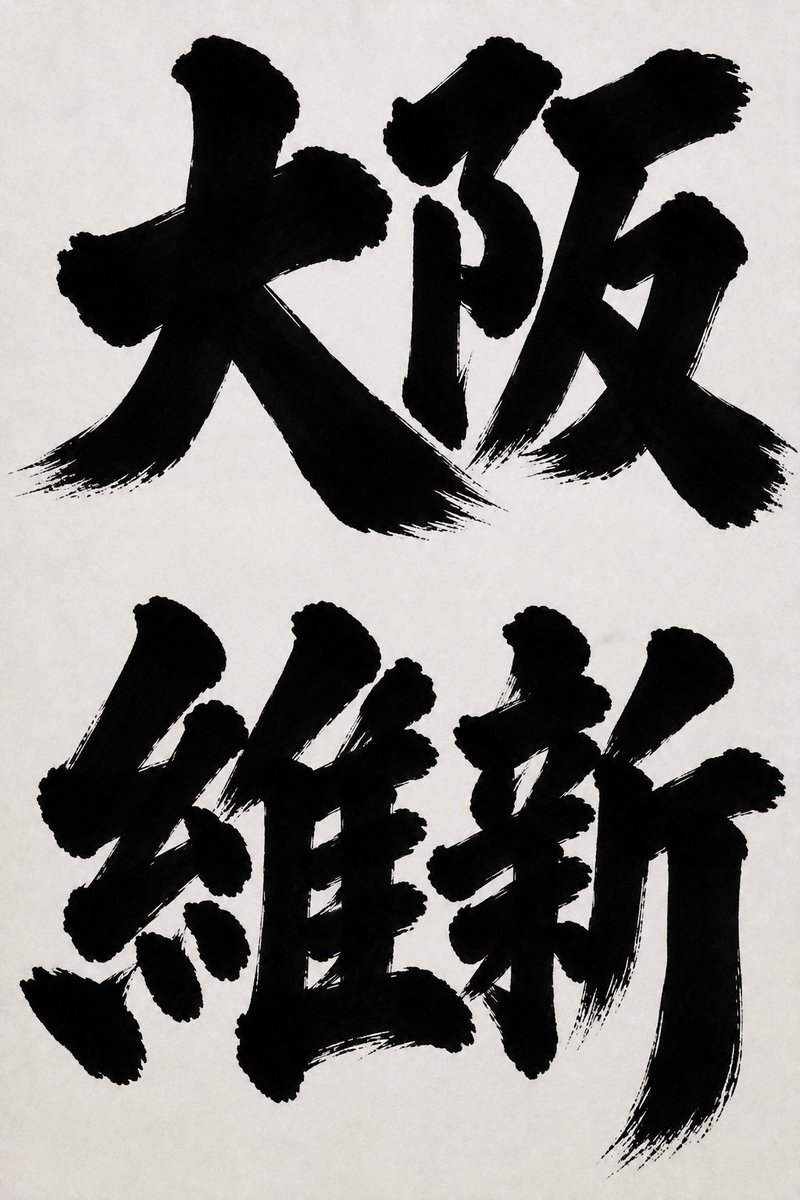 大阪
維新